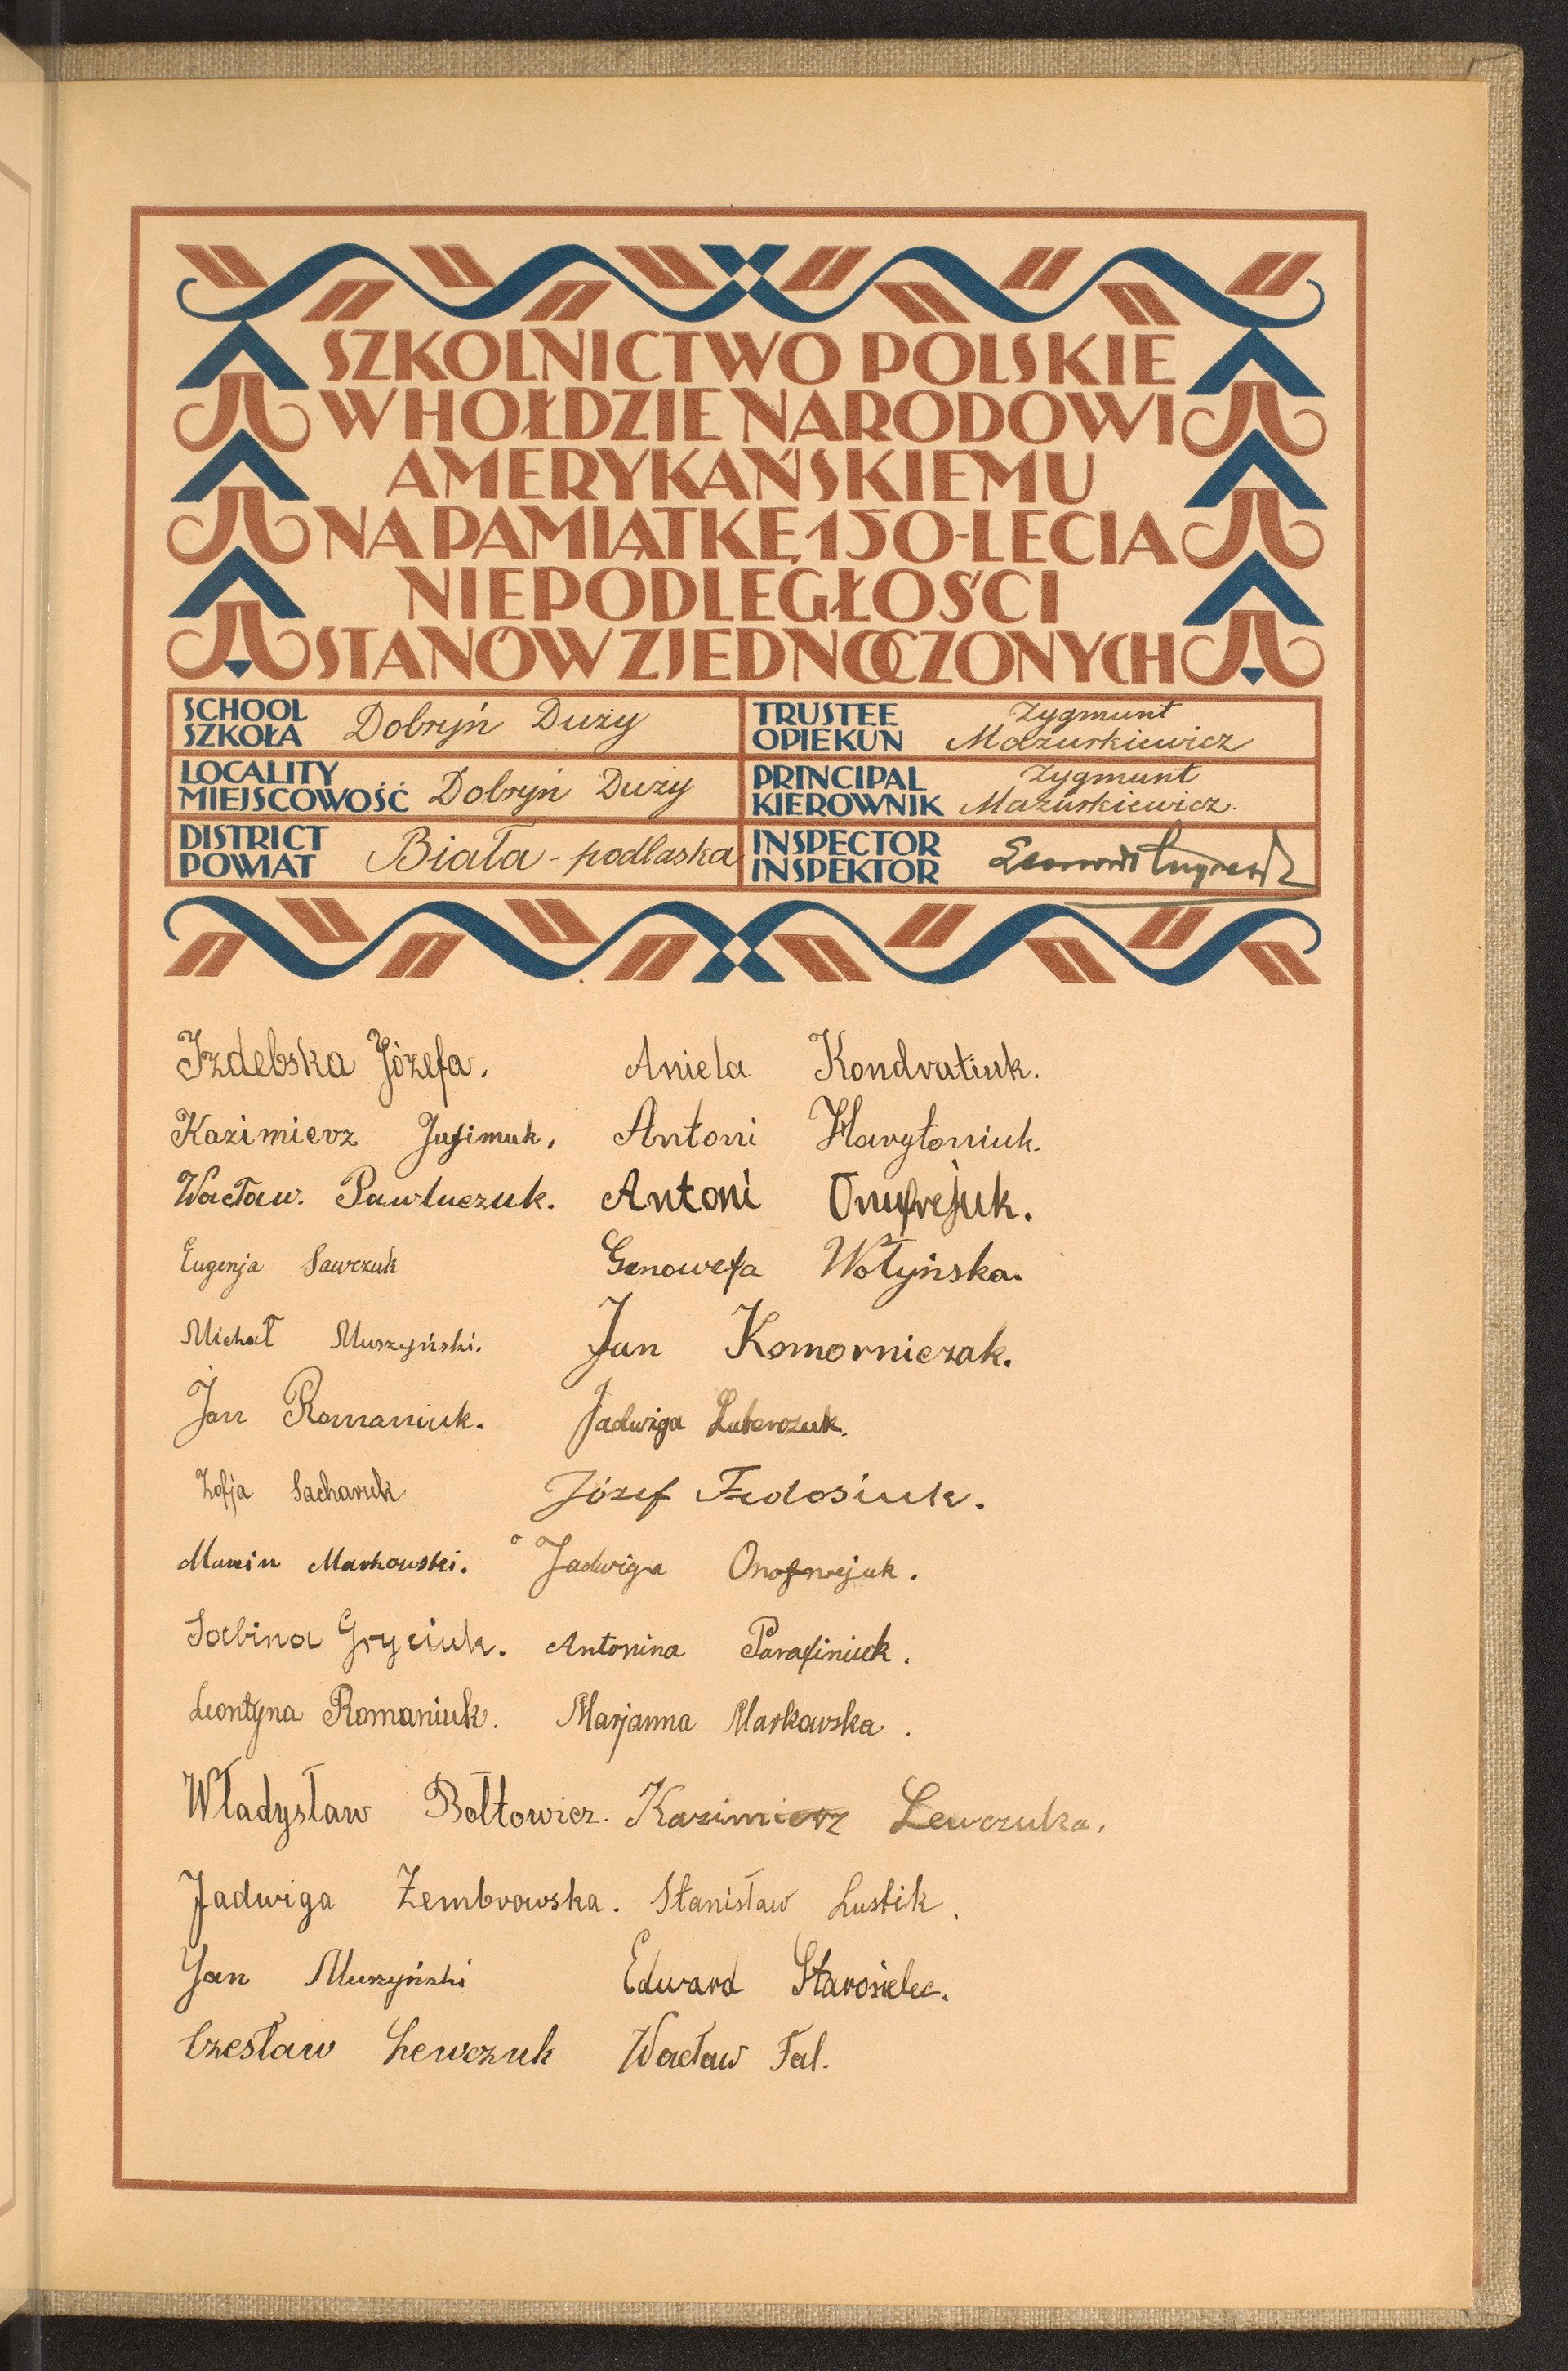 SZKOLNICTWO POLSKIE
W HOŁDZIE NARODOWI
AMERYKAŃSKIEMU
NA PAMIĄTKĘ 150-LECIA
NIEPODLEGŁOŚCI
STANÓW ZJEDNOCZONYCH
SCHOOL
SZKOŁA
Dobryń Duży
TRUSTEE
OPIEKUN
Zygmunt
Mazurkiewicz
LOCALITY
MIEJSCOWOŚĆ
Dobryń Duży
PRINCIPAL
KIEROWNIK
Zygmunt
Mazurkiewicz.
DISTRICT
POWIAT
Biała - podlaska
INSPECTOR
INSPEKTOR
Izdebska Józefa.
Aniela Kondratiuk.
Kazimierz Jafimuk.
Antoni Harytoniuk.
Wacław. Pawluczuk.
Antoni Onufrejuk.
Eugenja Sawczuk
Genowefa Wołyńska.
Michał Muszyński.
Jan Komorniczak.
Jan Romaniuk.
Jadwiga
Zofja Sacharuk
Józef Fedosiuk.
Marcin Markowski.
Jadwiga Onofrejuk.
Sabina Gryciuk.
Antonina Parafiniuk.
Leontyna Romaniuk.
Marjanna Markowska.
Władysław Bołtowicz.
Kazimierz Lewczuka.
Jadwiga Zembrowska.
Stanisław Lustik.
Jan Muszyński
Edward Starosielec.
Czesław Lewczuk
Wacław Fal.